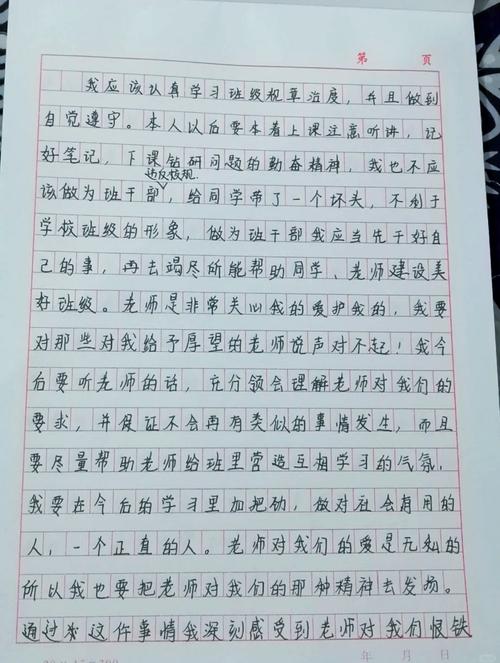 第 页
我应该认真学习班级规章治度，并且做到
自觉遵守。本人以后要本着上课注意听讲，记
好笔记，下课钻研问题的勤奋精神，我也不应
违反校规
该做为班干部，给同学带了一个坏头，不利于
学校班级的形象，做为班干部我应当先干好自
己的事，再去竭尽所能帮助同学、老师建设美
好班级。老师是非常关心我的爱护我的，我要
对那些对我给予厚望的老师说声对不起！我今
后要听老师的话，充分领会理解老师对我们的
要求，并保证不会再有类似的事情发生，而且
要尽量帮助老师给班里营造互相学习的气氛.
我要在今后的学习里加把劲，做对社会有用的
人，一个正直的人。老师对我们的爱是无私的
所以我也要把老师对我们的那种精神去发扬。
通过 这件事情我深刻感受到老师对我们恨铁
年 月 日